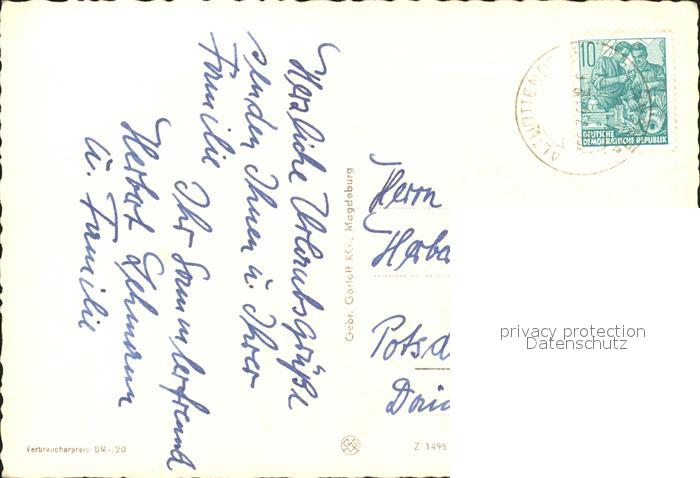 Herzliche Urlaubsgrüße
senden Ihnen u. Ihrer
Familie
Ihr Sammlerfreund
Herbert Lehmann
u. Familie
Gebr. Garloff KG., Magdeburg
10
DEUTSCHE
DEMOKRATISCHE REPUBLIK
Herrn
Potsd
privacy protection
Datenschutz
Verbraucherpreis DM -,20
Z 1495